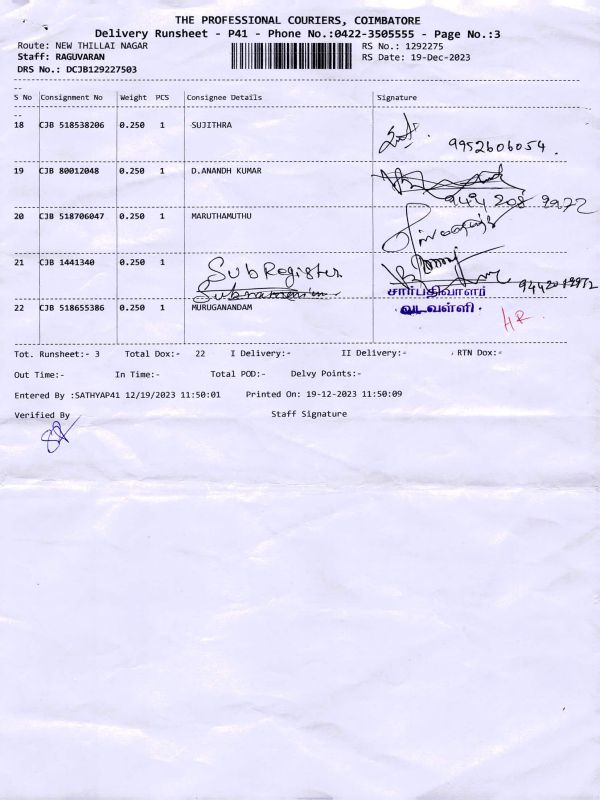 THE PROFESSIONAL COURIERS, COIMBATORE
Delivery Runsheet - P41 - Phone No.:0422-3505555 - Page No.:3
Route: NEW THILLAI NAGAR RS No.: 1292275
Staff: RAGUVARAN RS Date: 19-Dec-2023
DRS No.: DCJB129227503
S No Consignment No Weight PCS Consignee Details Signature
18 CJB 518538206 0.250 1 SUJITHRA
9952606054.
19 CJB 80012048 0.250 1 D.ANANDH KUMAR
20 CJB 518706047 0.250 1 MARUTHAMUTHU
21 CJB 1441340 0.250 1 SubRegister
சார்பதிவாளர்
22 CJB 518655386 0.250 1 MURUGANANDAM வடவள்ளி.
Tot. Runsheet:- 3 Total Dox:- 22 I Delivery:- II Delivery:- RTN Dox:-
Out Time:- In Time:- Total POD:- Delvy Points:-
Entered By :SATHYAP41 12/19/2023 11:50:01 Printed On: 19-12-2023 11:50:09
Verified By Staff Signature